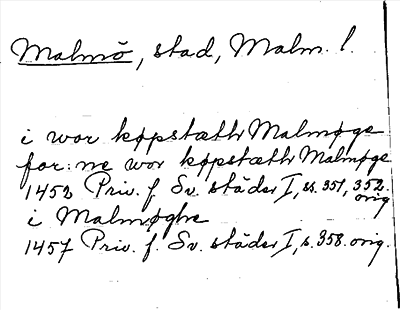 Malmö, stad, Malm. l.
i wor køpstæth Malmøge
for:ne wor køpstæth Malmøge
1452 Priv. f. Sv. städer I, ss. 351, 352.
orig
i Malmøghe
1457 Priv. f. Sv. städer I, s. 358. orig.